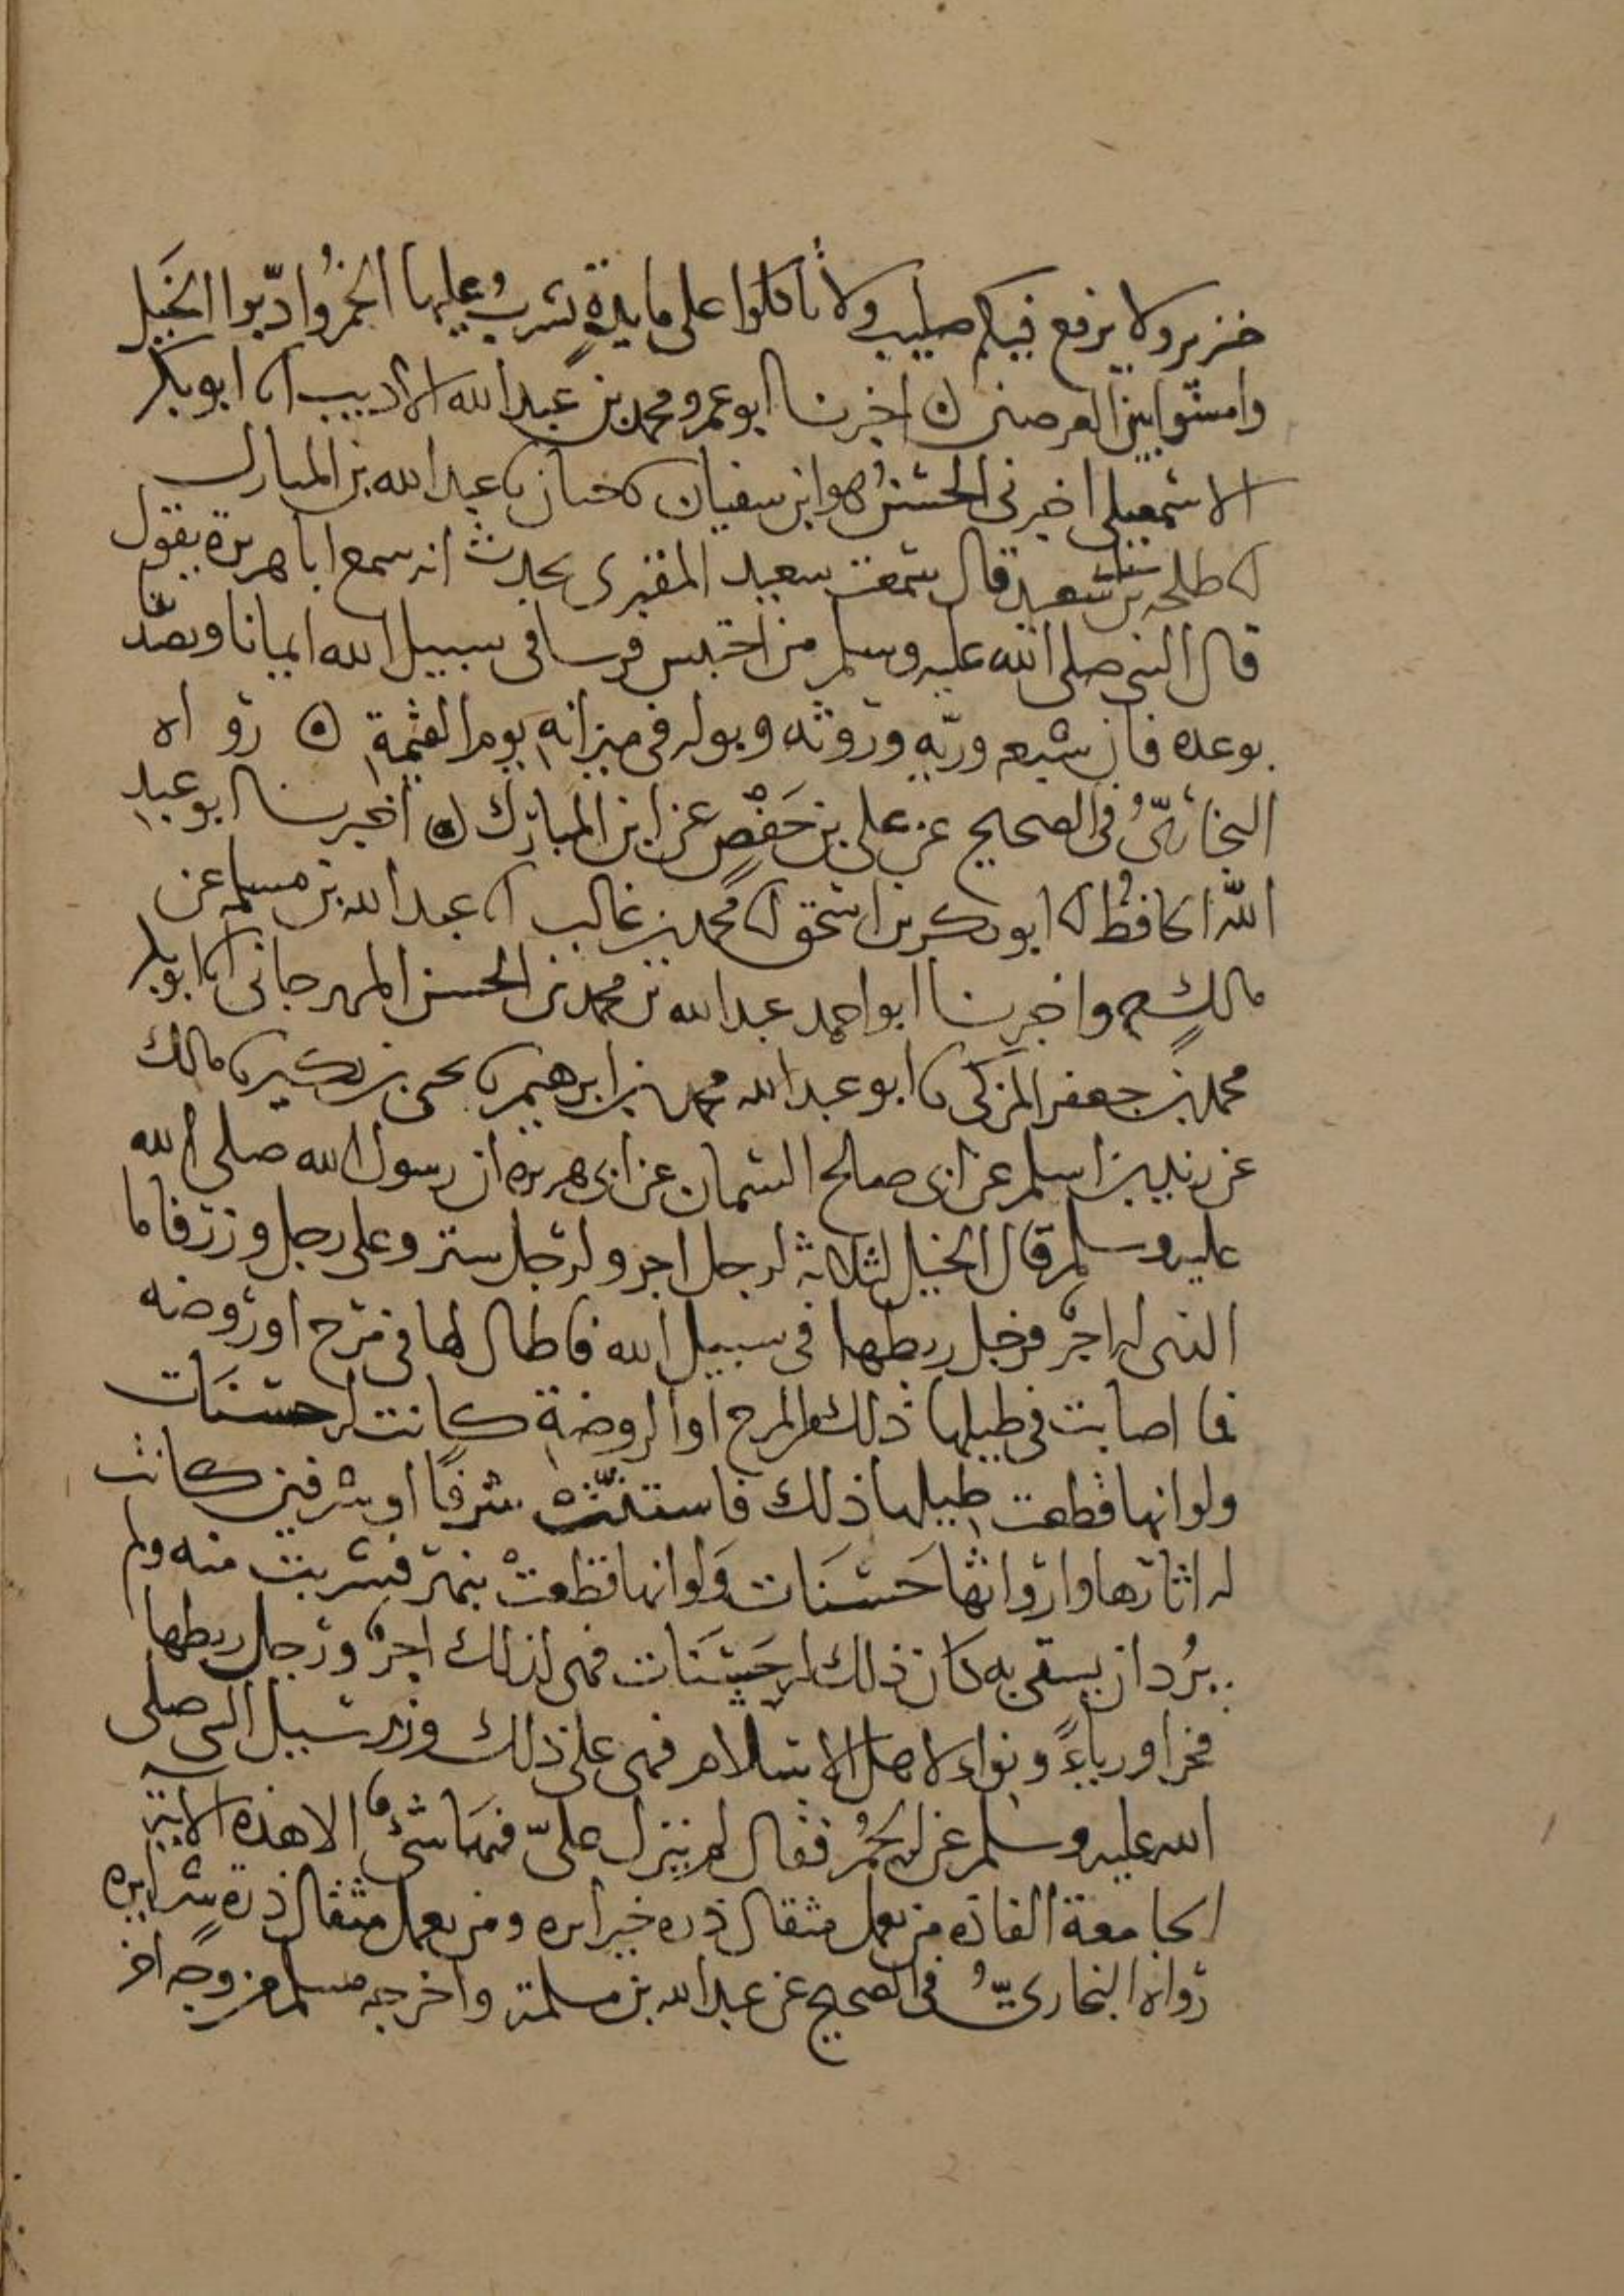 خنزير ولا يرفع فيكم صليب ولا تأكلوا على مايدةٍ يشربُ عليها الخمرُ وادّبوا الخَيل
وامشوا بين الغرضين ه اخبرنا ابو عمرو محمد بن عبد الله الاديب انا ابو بكر
الاسمعيلي اخبرني الحسنُ هو ابن سفيان نا حبان نا عبد الله بن المبارك
انا طلحة بن سعيد قال سمعت سعيد المقبرى يحدث انه سمع ابا هريرة يقول
قال النبي صلى الله عليه وسلم من احتبس فرسا في سبيل الله ايمانا وتصدّقا
بوعده فان شبعه وريّه وروثه وبوله في ميزانه يوم القيمة ه رواه
البخاريُّ في الصحيح عن علي بن حَفْصٍ عن ابن المبارك ه اخبرنا ابو عبد
الله الحافظُ انا ابو بكر بن اسحق انا محمد بن غالب نا عبد الله بن مسلمة عن
مالكٍ ح واخبرنا ابو احمد عبد الله بن محمد بن الحسن المهرجاني انا ابو بكر
محمد بن جعفر المزكى نا ابو عبد الله محمد بن ابرهيم نا يحيى بن بكير نا مالك
عن زيد بن اسلم عن ابى صالح السمان عن ابى هريرة ان رسول الله صلى الله
عليه وسلم قال الخيل لثلاثة لرجل اجر ولرجل ستر وعلى رجل وزر فاما
الذي له اجرٌ فرجل ربطها في سبيل الله فاطال لها في مرج او روضة
فما اصابت في طيلها ذلك من المرج او الروضةِ كانت له حسنَات
ولو انها قطعت طيلها ذلك فاستنّتْ شرفًا او شرفين كانت
له اثارها وارواثها حَسَنَات وَلو انها قطعتْ بنهر فشربت منه ولم
يُرد ان يسقى به كان ذلك له حَسَنَات فهي لذلك اجرٌ ورجل ربطها
فخرا ورياءً ونواء لاهل الاسلام فهي على ذلك وزر سيل النبي صلى
الله عليه وسلم عن الحُمُر فقال لم ينزل عليّ فيهَا شئٌ الا هذه الاية
الجامعة الفاذة من يعمل مثقال ذرة خيرا يره ومن يعمل مثقال ذرة شرا يره
رواه البخاريُّ في الصحيح عن عبد الله بن مسلمة واخرجه مسلم من وجه اخر